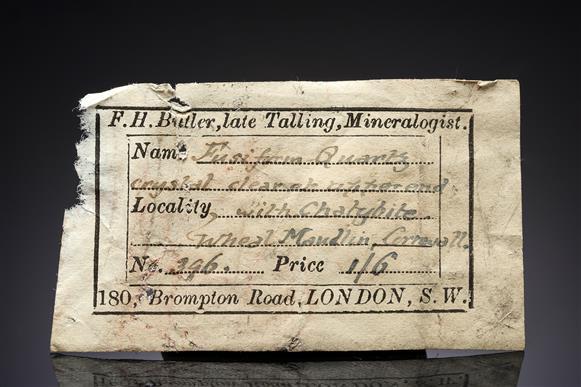 F. H. Butler, late Talling, Mineralogist.
Name Fusiform Quartz
crystal clear at upper end
Locality with Chalybite
Wheal Maudlin, Cornwall.
No. 396. Price 1/6
180, Brompton Road, LONDON, S. W.